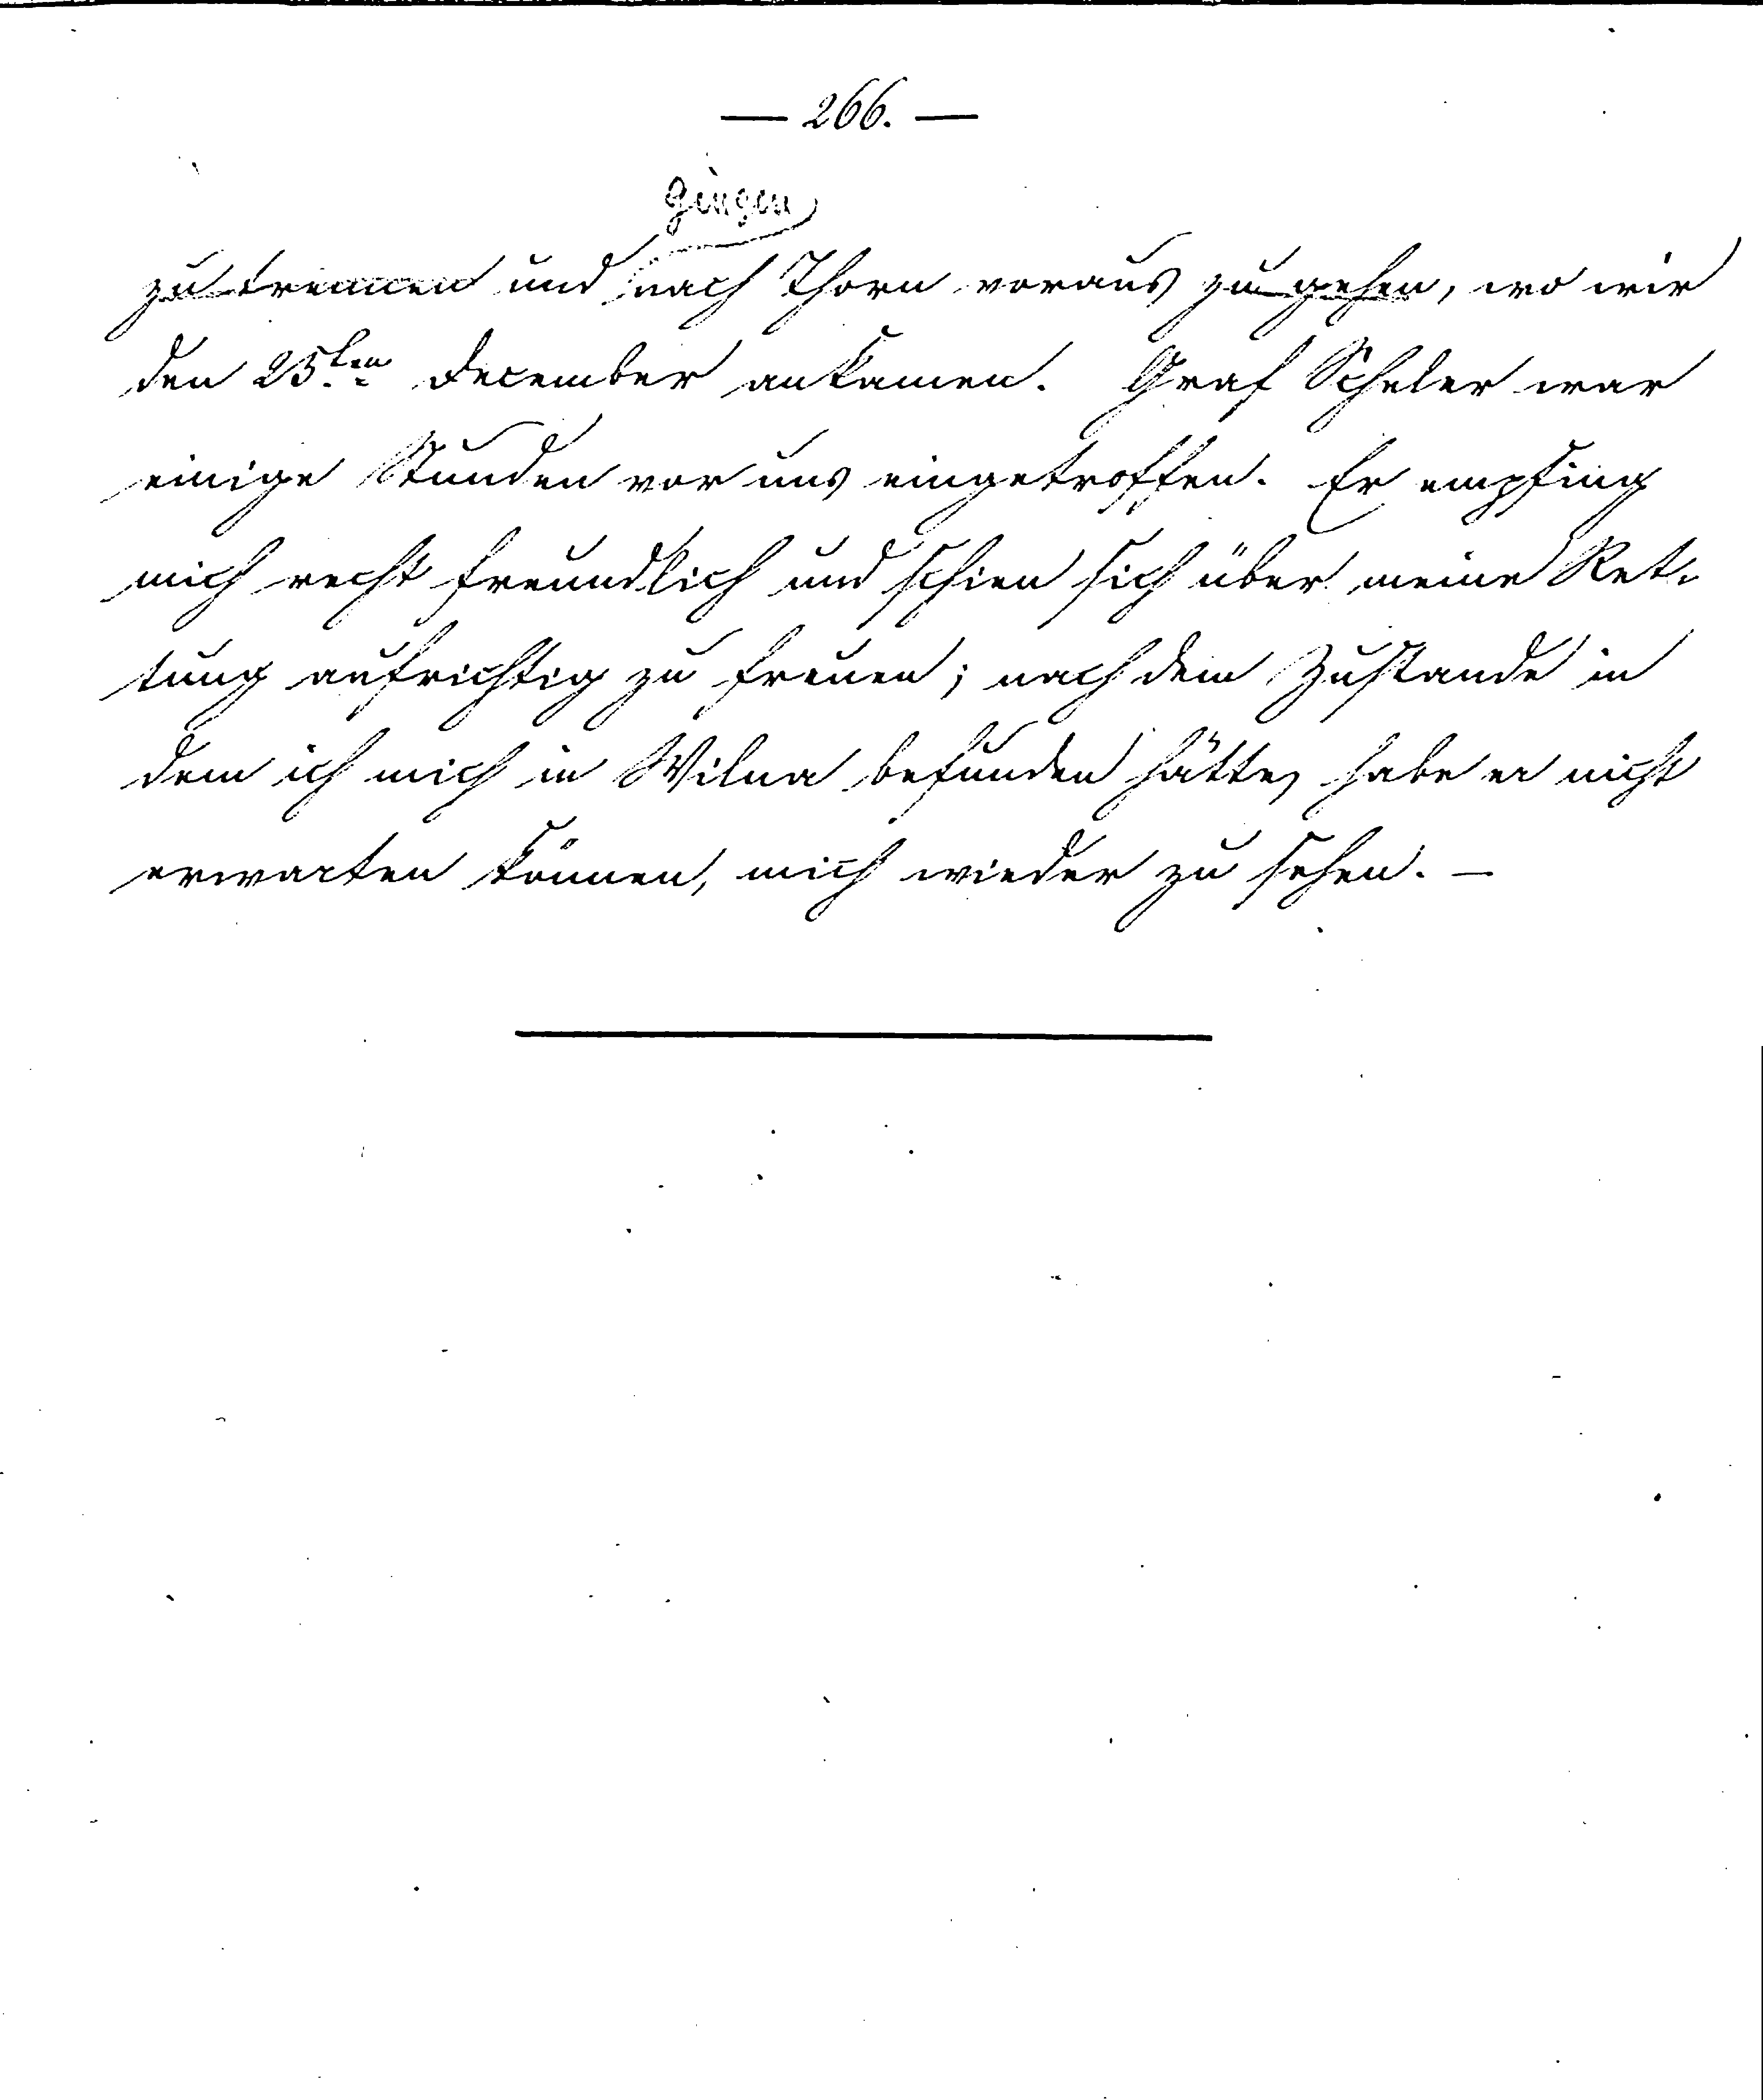 — 266. —
gingen
zu trennen und nach Thorn voraus zu gehen, wo wir
den 25ten December ankamen. Graf Scheler war
einige Stunden vor uns eingetroffen. Er empfing
mich recht freundlich und schien sich über meine Ret-
tung aufrichtig zu freuen; nach dem Zustande in
dem ich mich in Wilna befunden hätte, habe er nicht
erwarten können, mich wieder zu sehen. —